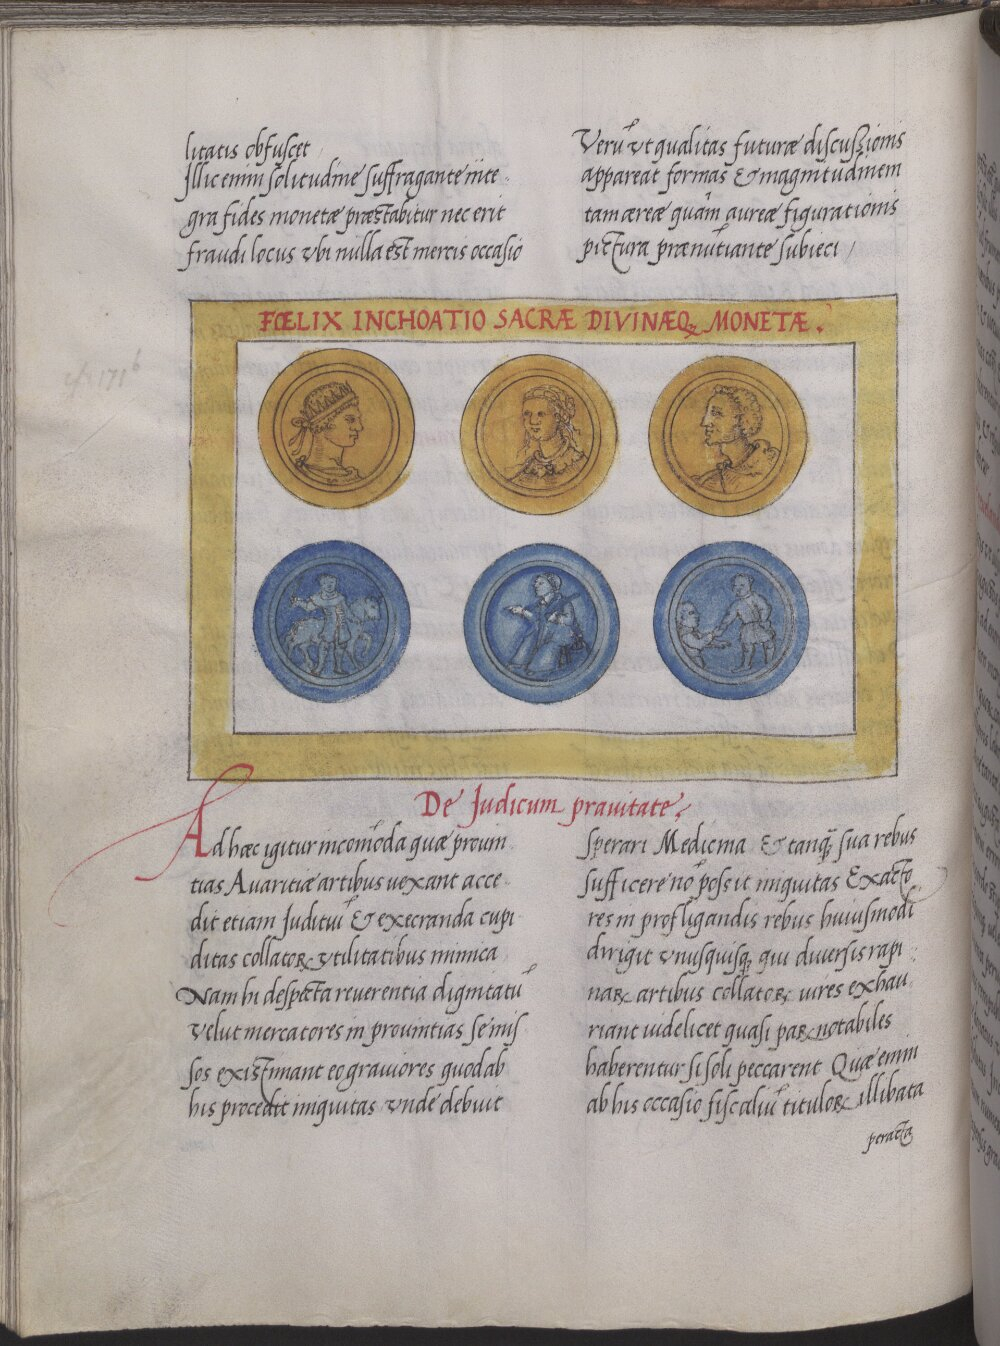 litatis obfuscet
Illic enim solitudine suffragante inte
gra fides monetæ præstabitur nec erit
fraudi locus vbi nulla est mercis occasio
Verū vt qualitas futuræ discussionis
appareat formas & magnitudinem
tam æreæ quàm aureæ figurationis
pictura prænūtiante subieci
FŒLIX INCHOATIO SACRÆ DIVINÆQꝫ MONETÆ.
171
De Judicum prauitate.
Ad hæc igitur incōmoda quæ prouin
tias Auaritiæ artibus uexant acce
dit etiam Judicū & execranda cupi
ditas collatoꝝ vtilitatibus inimica
Nam hi despecta reuerentia dignitatū
velut mercatores in prouintias se mis
sos existimant eo grauiores quod ab
his procedit iniquitas vnde debuit
Sperari Medicina & tanqꝫ̄ sua rebus
sufficere nō possit iniquitas Exacto
res in profligandis rebus huiusmodi
dirigit vnusquisqꝫ qui diuersis rapi
naꝝ artibus collatoꝝ uires exhau
riant uidelicet quasi paꝝ notabiles
haberentur si soli peccarent Quæ enim
ab his occasio fiscaliū tituloꝝ illibata
peracta